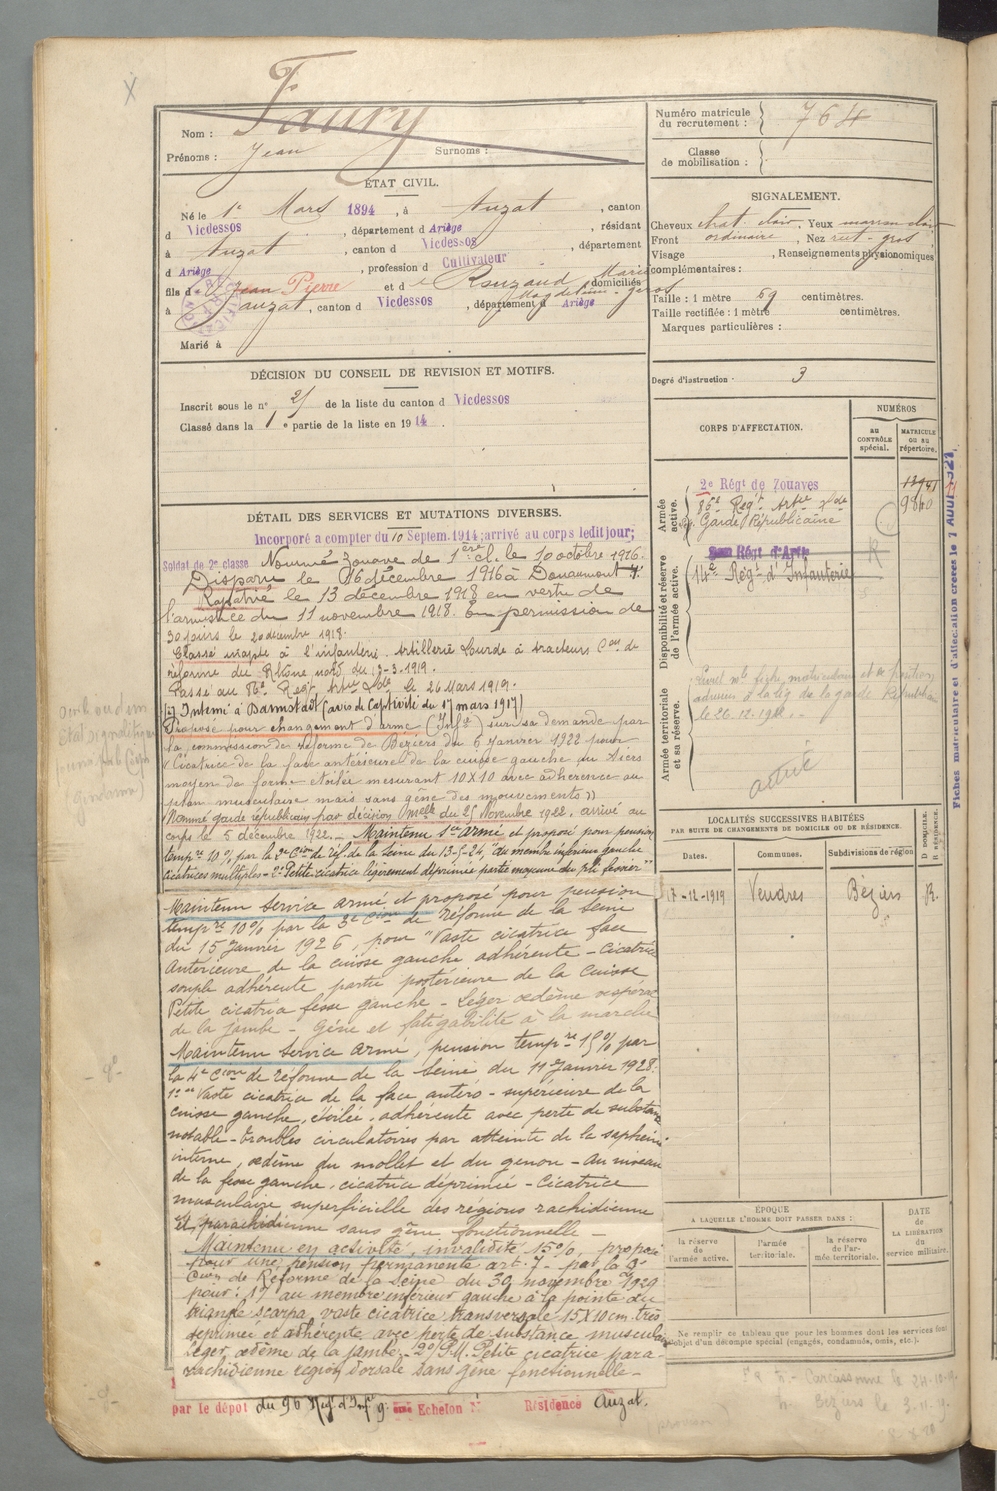 Faury
Nom :
Prénoms : Jean Surnoms :
Numéro matricule du recrutement : 764
Classe de mobilisation :
ÉTAT CIVIL.
Né le 1er Mars 1894, à Auzat, canton
d Vicdessos, département d Ariège, résidant
à Auzat, canton d Vicdessos, département
d Ariège, profession d Cultivateur
fils d Jean Pierre et d Rouzaud Marie Magdeleine, domiciliés
à Auzat, canton d Vicdessos, département d Ariège
Marié à
SIGNALEMENT.
Cheveux chat. clair, Yeux marron clair
Front ordinaire, Nez rect. gros
Visage , Renseignements physionomiques
complémentaires :
Taille : 1 mètre 69 centimètres.
Taille rectifiée : 1 mètre centimètres.
Marques particulières :
Degré d'instruction : 3
DÉCISION DU CONSEIL DE REVISION ET MOTIFS.
Inscrit sous le n° 21 de la liste du canton d Vicdessos
Classé dans la 1e partie de la liste en 1914.
CORPS D'AFFECTATION.
NUMÉROS
AU CONTRÔLE spécial.
MATRICULE OU AU répertoire.
Armée active.
2e Régt de Zouaves
86e Regt Artie Lde 9840
Garde Républicaine
Disponibilité et réserve de l'armée active.
Régt d'Artie
14e Régt d'Infanterie R
Armée territoriale et sa réserve.
matricule et
à la lég. de la garde Républic
le 26.12.1922
active
Fiches matriculaire et d'affectation créées le 7 AOUT 1921
DÉTAIL DES SERVICES ET MUTATIONS DIVERSES.
Incorporé a compter du 10 Septem. 1914; arrivé au corps ledit jour;
Soldat de 2e classe Nommé Zouave de 1ère cl. le 10 octobre 1916.
Disparu le 16 décembre 1916 à Douaumont
Rapatrié le 13 décembre 1918 en vertu de
l'armistice du 11 novembre 1918. En permission de
30 jours le 20 décembre 1918.
Classé inapte à l'infanterie. Artillerie Lourde à tracteurs Con de
réforme du Rhône nord du 13-3-1919.
Passé au 86e Regt Artie Lde le 26 Mars 1919.
Interné à Darmstadt (avis de Captivité du 17 mars 1917)
Proposé pour changement d'arme (Infie) sur sa demande par
la commission de réforme de Béziers du 6 janvier 1922 pour
(Cicatrice de la face antérieure de la cuisse gauche au tiers
moyen de forme étoilée mesurant 10X10 avec adhérence au
plan musculaire mais sans gêne des mouvements))
Nommé garde républicain par décision Mlle du 25 Novembre 1922, arrivé au
corps le 5 décembre 1922. Maintenu sce armé et proposé pour pension
tempre 10 % par la 2e Cion de réf. de la Seine du 13-5-24, "du membre inférieur gauche
cicatrices multiples - 2° Petite cicatrice légèrement déprimée partie moyenne du pli fessier"
Maintenu Service armé et proposé pour pension
tempre 10% par la 3e Cion de réforme de la Seine
du 15 Janvier 1926, pour "Vaste cicatrice face
antérieure de la cuisse gauche adhérente - Cicatrice
souple adhérente partie postérieure de la cuisse
Petite cicatrice fesse gauche - Léger œdème vespéral
de la jambe - Gêne et fatigabilité à la marche
Maintenu Service armé, pension tempre 15% par
la 4e Cion de réforme de la Seine du 11 Janvier 1928.
1° Vaste cicatrice de la face antéro-supérieure de la
cuisse gauche, étoilée, adhérente avec perte de substance
notable - troubles circulatoires par atteinte de la saphène
interne, œdème du mollet et du genou - Au niveau
de la fesse gauche, cicatrice déprimée - Cicatrice
musculaire superficielle des régions rachidienne
et parachidienne sans gêne fonctionnelle -
Maintenu en activité, invalidité 15%, proposé
pour une pension permanente art. 7 - par la 3e
Cion de Réforme de la Seine du 30 novembre 1929
pour : 1° au membre inférieur gauche à la pointe du
triangle scarpa, vaste cicatrice transversale 15X10cm. très
déprimée et adhérente avec perte de substance musculaire
léger œdème de la jambe - 2° P.M. Petite cicatrice para-
rachidienne region dorsale sans gêne fonctionnelle -
par le dépôt du 96 Regt d'Infie Echelon N° Résidence Auzat.
LOCALITÉS SUCCESSIVES HABITÉES
PAR SUITE DE CHANGEMENTS DE DOMICILE OU DE RÉSIDENCE.
Dates. Communes. Subdivisions de région D DOMICILE. R RÉSIDENCE.
17-12-1919 Vendres Béziers R.
ÉPOQUE
A LAQUELLE L'HOMME DOIT PASSER DANS :
la réserve de l'armée active.
l'armée territoriale.
la réserve de l'armée territoriale.
DATE DE LA LIBÉRATION du service militaire.
Ne remplir ce tableau que pour les hommes dont les services font
l'objet d'un décompte spécial (engagés, condamnés, omis, etc.).
Carcassonne le 24-10-19
Béziers le 3.11.19